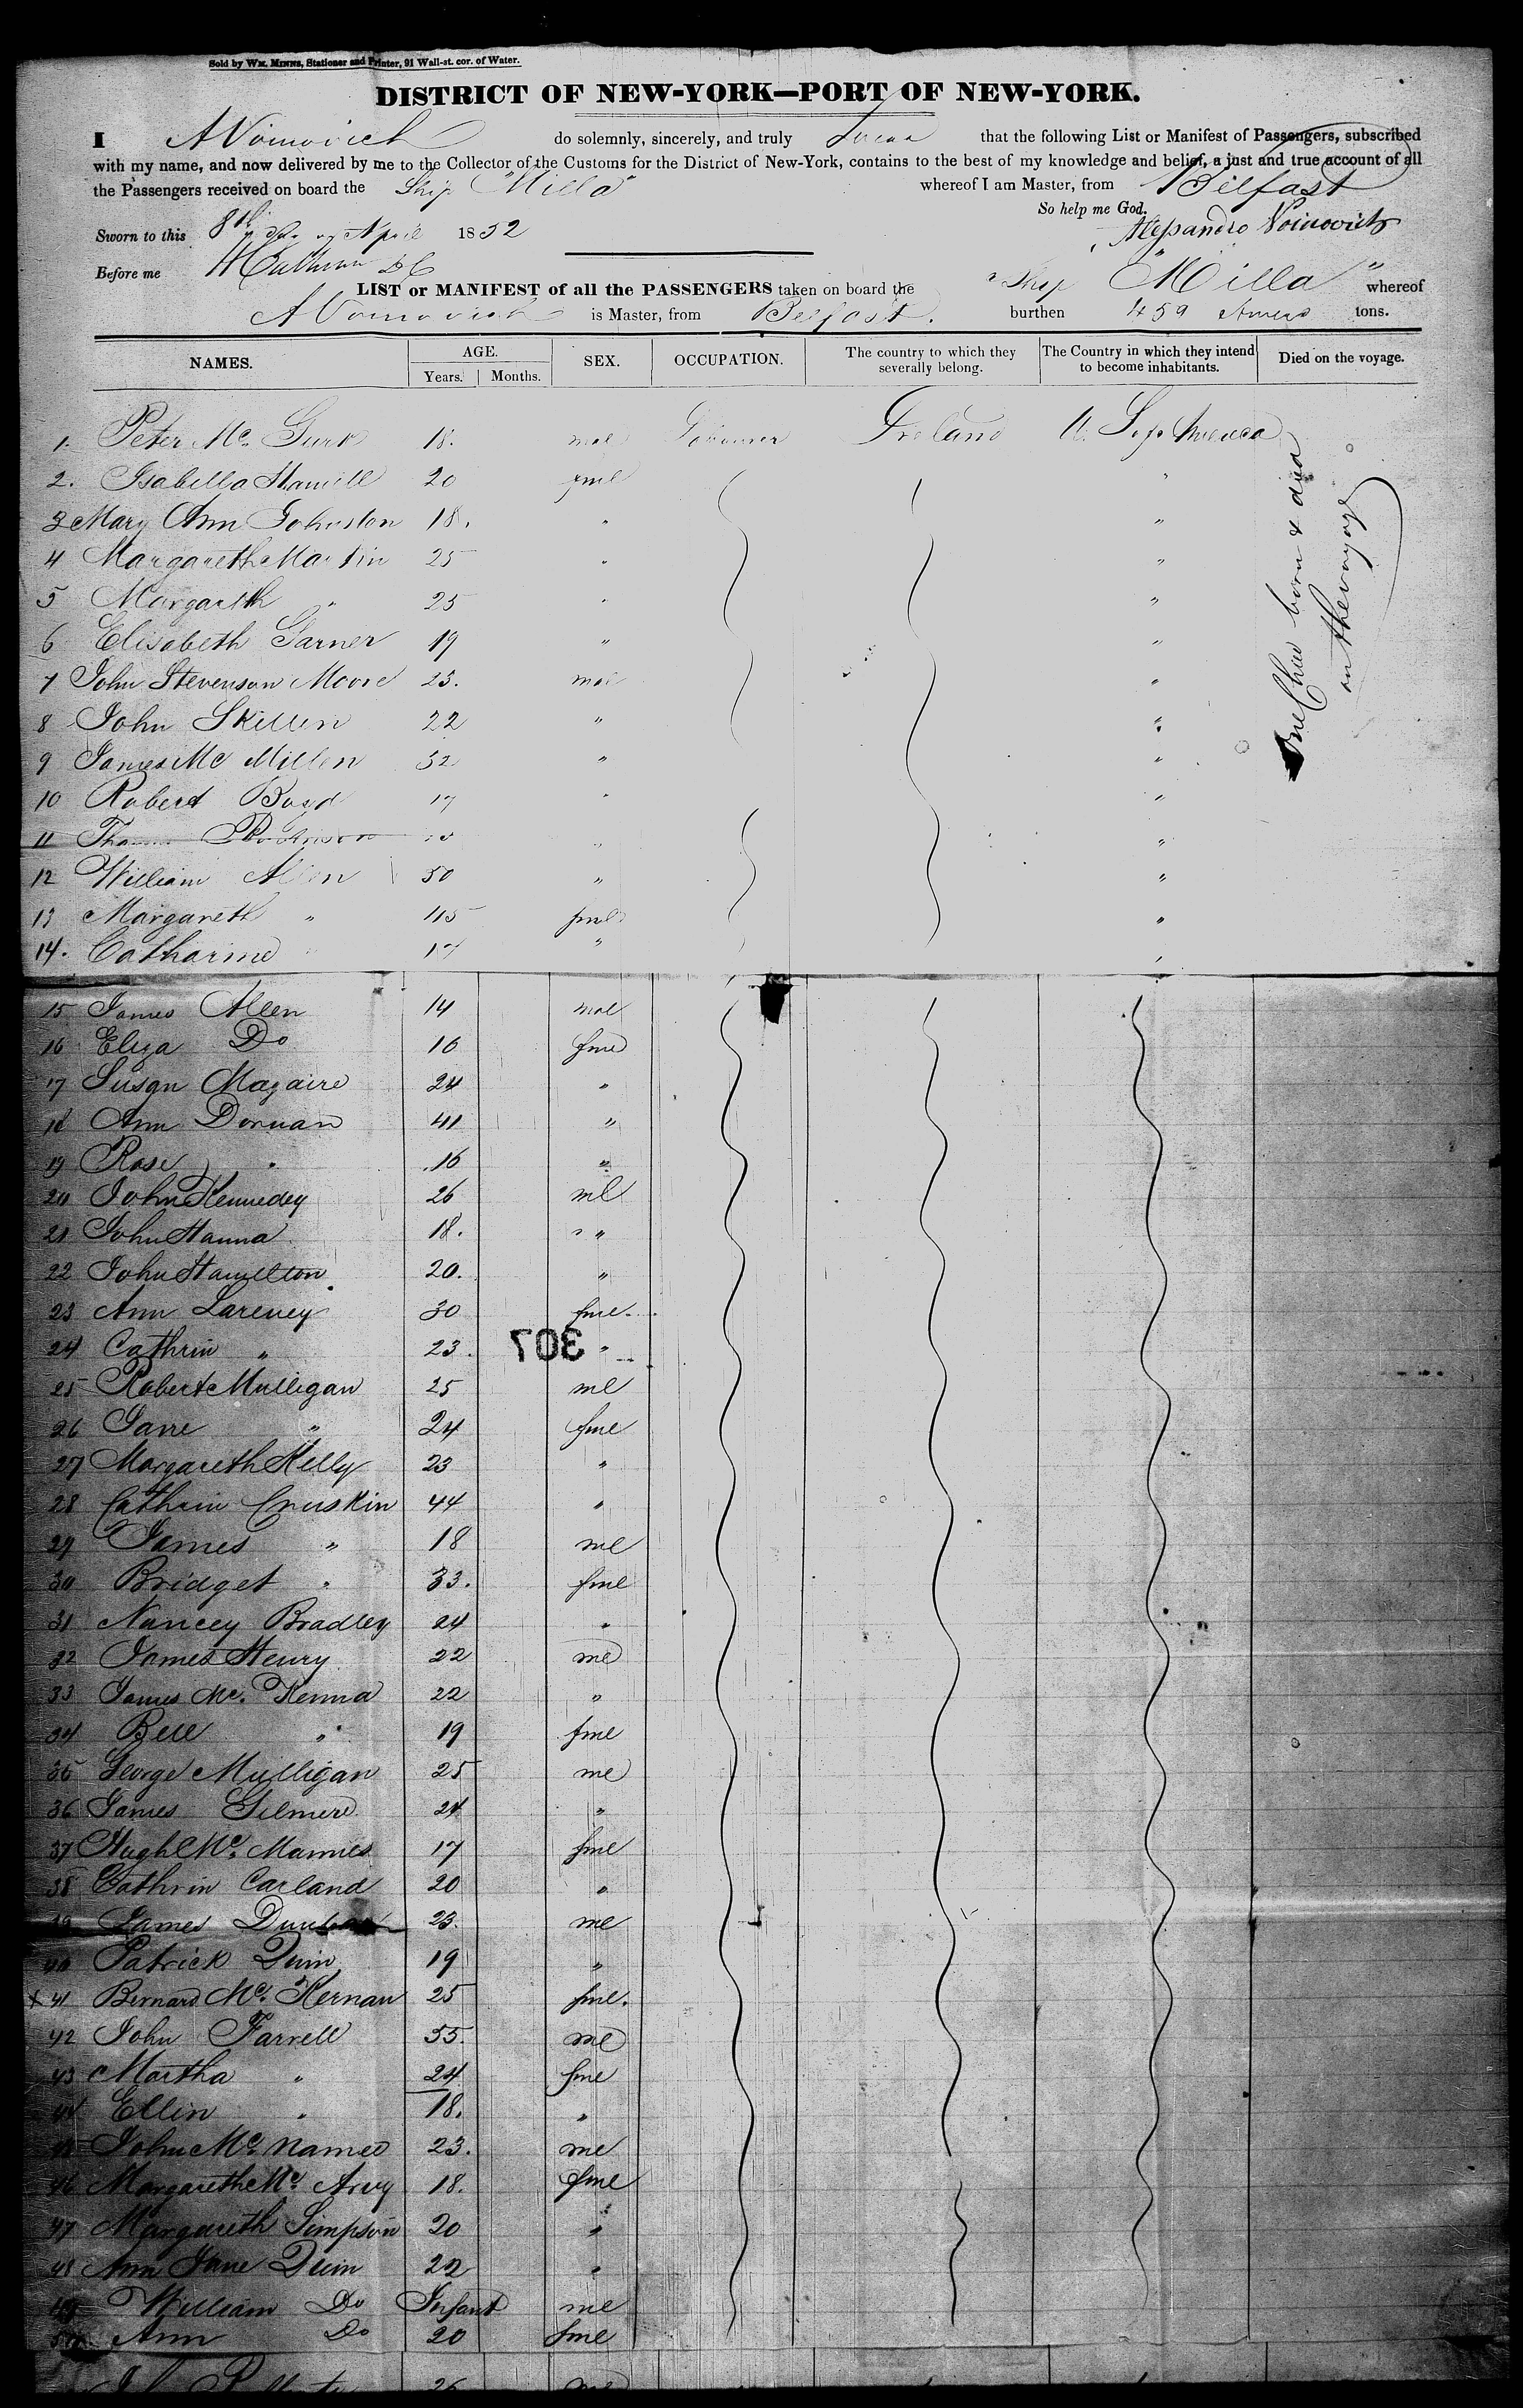 Sold by Wm. Minns, Stationer and Printer, 91 Wall-st. cor. of Water.
DISTRICT OF NEW-YORK—PORT OF NEW-YORK.
I A Voinovich do solemnly, sincerely, and truly Swear that the following List or Manifest of Passengers, subscribed
with my name, and now delivered by me to the Collector of the Customs for the District of New-York, contains to the best of my knowledge and belief, a just and true account of all
the Passengers received on board the Ship "Milla" whereof I am Master, from Belfast
So help me God.
Sworn to this 8th day of April 1852 Alessandro Voinovich
Before me
LIST or MANIFEST of all the PASSENGERS taken on board the Ship "Milla" whereof
A Voinovich is Master, from Belfast. burthen 459 tons.
NAMES. AGE. Years. Months. SEX. OCCUPATION. The country to which they severally belong. The Country in which they intend to become inhabitants. Died on the voyage.
1. Peter Mc. Gurk 18. mal Labourer Ireland America
2. Isabella Hamill 20 fml "
3 Mary Ann Johnston 18. " "
4 Margareth Martin 25 " "
5 Margareth " 25 " "
6 Elisabeth Garner 19 " "
7 John Stevenson Moore 23. mal "
8 John Skillen 22 " "
9 James Mc Millen 32 " "
10 Robert Boyd 17 " "
11 Robinson " "
12 William Allen 50 " "
13 Margareth " 45 fml "
14. Catharine " 17 " "
One Child born & died on the voyage
15 James Allen 14 mal
16 Eliza Do 16 fme
17 Susan Magaire 24 "
18 Ann Dornan 41 "
19 Rose " 16 "
20 John Kennedey 26 ml
21 John Hanna 18. "
22 John Hamilton 20. "
23 Ann Lareney 30 fme.
24 Cathrin " 23. "
307
25 Robert Mulligan 25 ml
26 Jane " 24 fme
27 Margareth Kelly 23 "
28 Cathrin Cruskin 44 "
29 James " 18 me
30 Bridget " 33. fme
31 Nancey Bradley 24 "
32 James Henry 22 me
33 James Mc. Kenna 22 "
34 Bell " 19 fme
35 George Mulligan 25 me
36 James Gilmere 24 "
37 Hugh Mc. Mannes 17 fme
38 Cathrin Carland 20 "
39 James 23. me
40 Patrick Quin 19 "
x 41 Bernard Mc. Kernan 25 fme.
42 John Farrell 55. me
43 Martha " 24 fme
44 Ellin " 18. "
45 John Mc. Namee 23. me
46 Margareth Mc. 18. fme
47 Margareth Simpson 20 "
48 Ann Jane Quin 22 "
49 William Do Infant me
50 Ann Do 20 fme
26